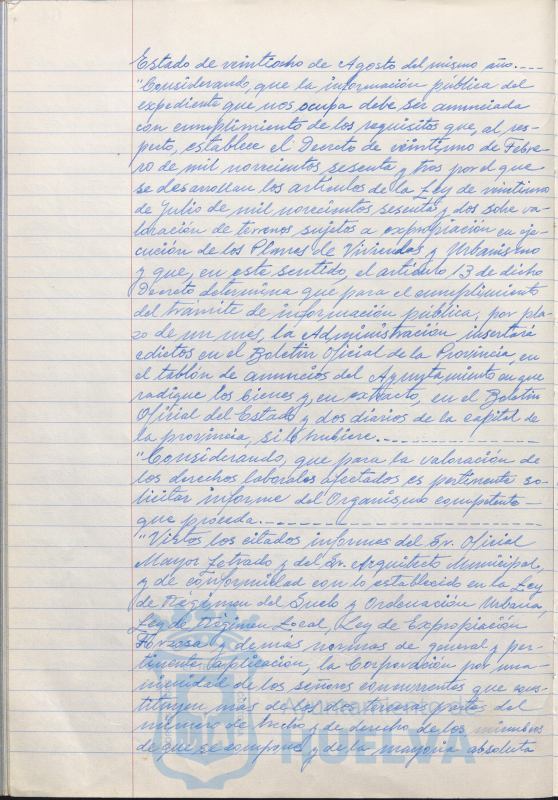 Estado de veintiocho de Agosto del mismo año.----
"Considerando, que la información pública del
expediente que nos ocupa debe ser anunciada
con cumplimiento de los requisitos que, al res-
pecto, establece el Decreto de veintiuno de Febre-
ro de mil novecientos sesenta y tres por el que
se desarrollan los artículos de la Ley de veintiuno
de Julio de mil novecientos sesenta y dos sobre va-
loración de terrenos sujetos a expropiación en eje-
cución de los Planes de Vivienda y Urbanismo
y que, en este sentido, el artículo 13 de dicho
Decreto determina que para el cumplimiento
del trámite de información pública, por pla-
zo de un mes, la Administración insertará
edictos en el Boletín Oficial de la Provincia, en
el tablón de anuncios del Ayuntamiento en que
radique los bienes y, en extracto, en el Boletín
Oficial del Estado y dos diarios de la capital de
la provincia, si lo hubiere.----------------
"Considerando, que para la valoración de
los derechos laborales afectados es pertinente so-
licitar informe del Organismo competente-
que proceda.---------------------
"Vistos los citados informes del Sr. Oficial
Mayor Letrado y del Sr. Arquitecto Municipal,
y de conformidad con lo establecido en la Ley
de Régimen del Suelo y Ordenación Urbana,
Ley de Régimen Local, Ley de Expropiación
Forzosa y demás normas de general y per-
tinente aplicación, la Corporación por una-
nimidad de los señores concurrentes que cons-
tituyen más de las dos terceras partes del
número de hecho y de derecho de los miembros
de que se compone y de la mayoría absoluta
HUELVA